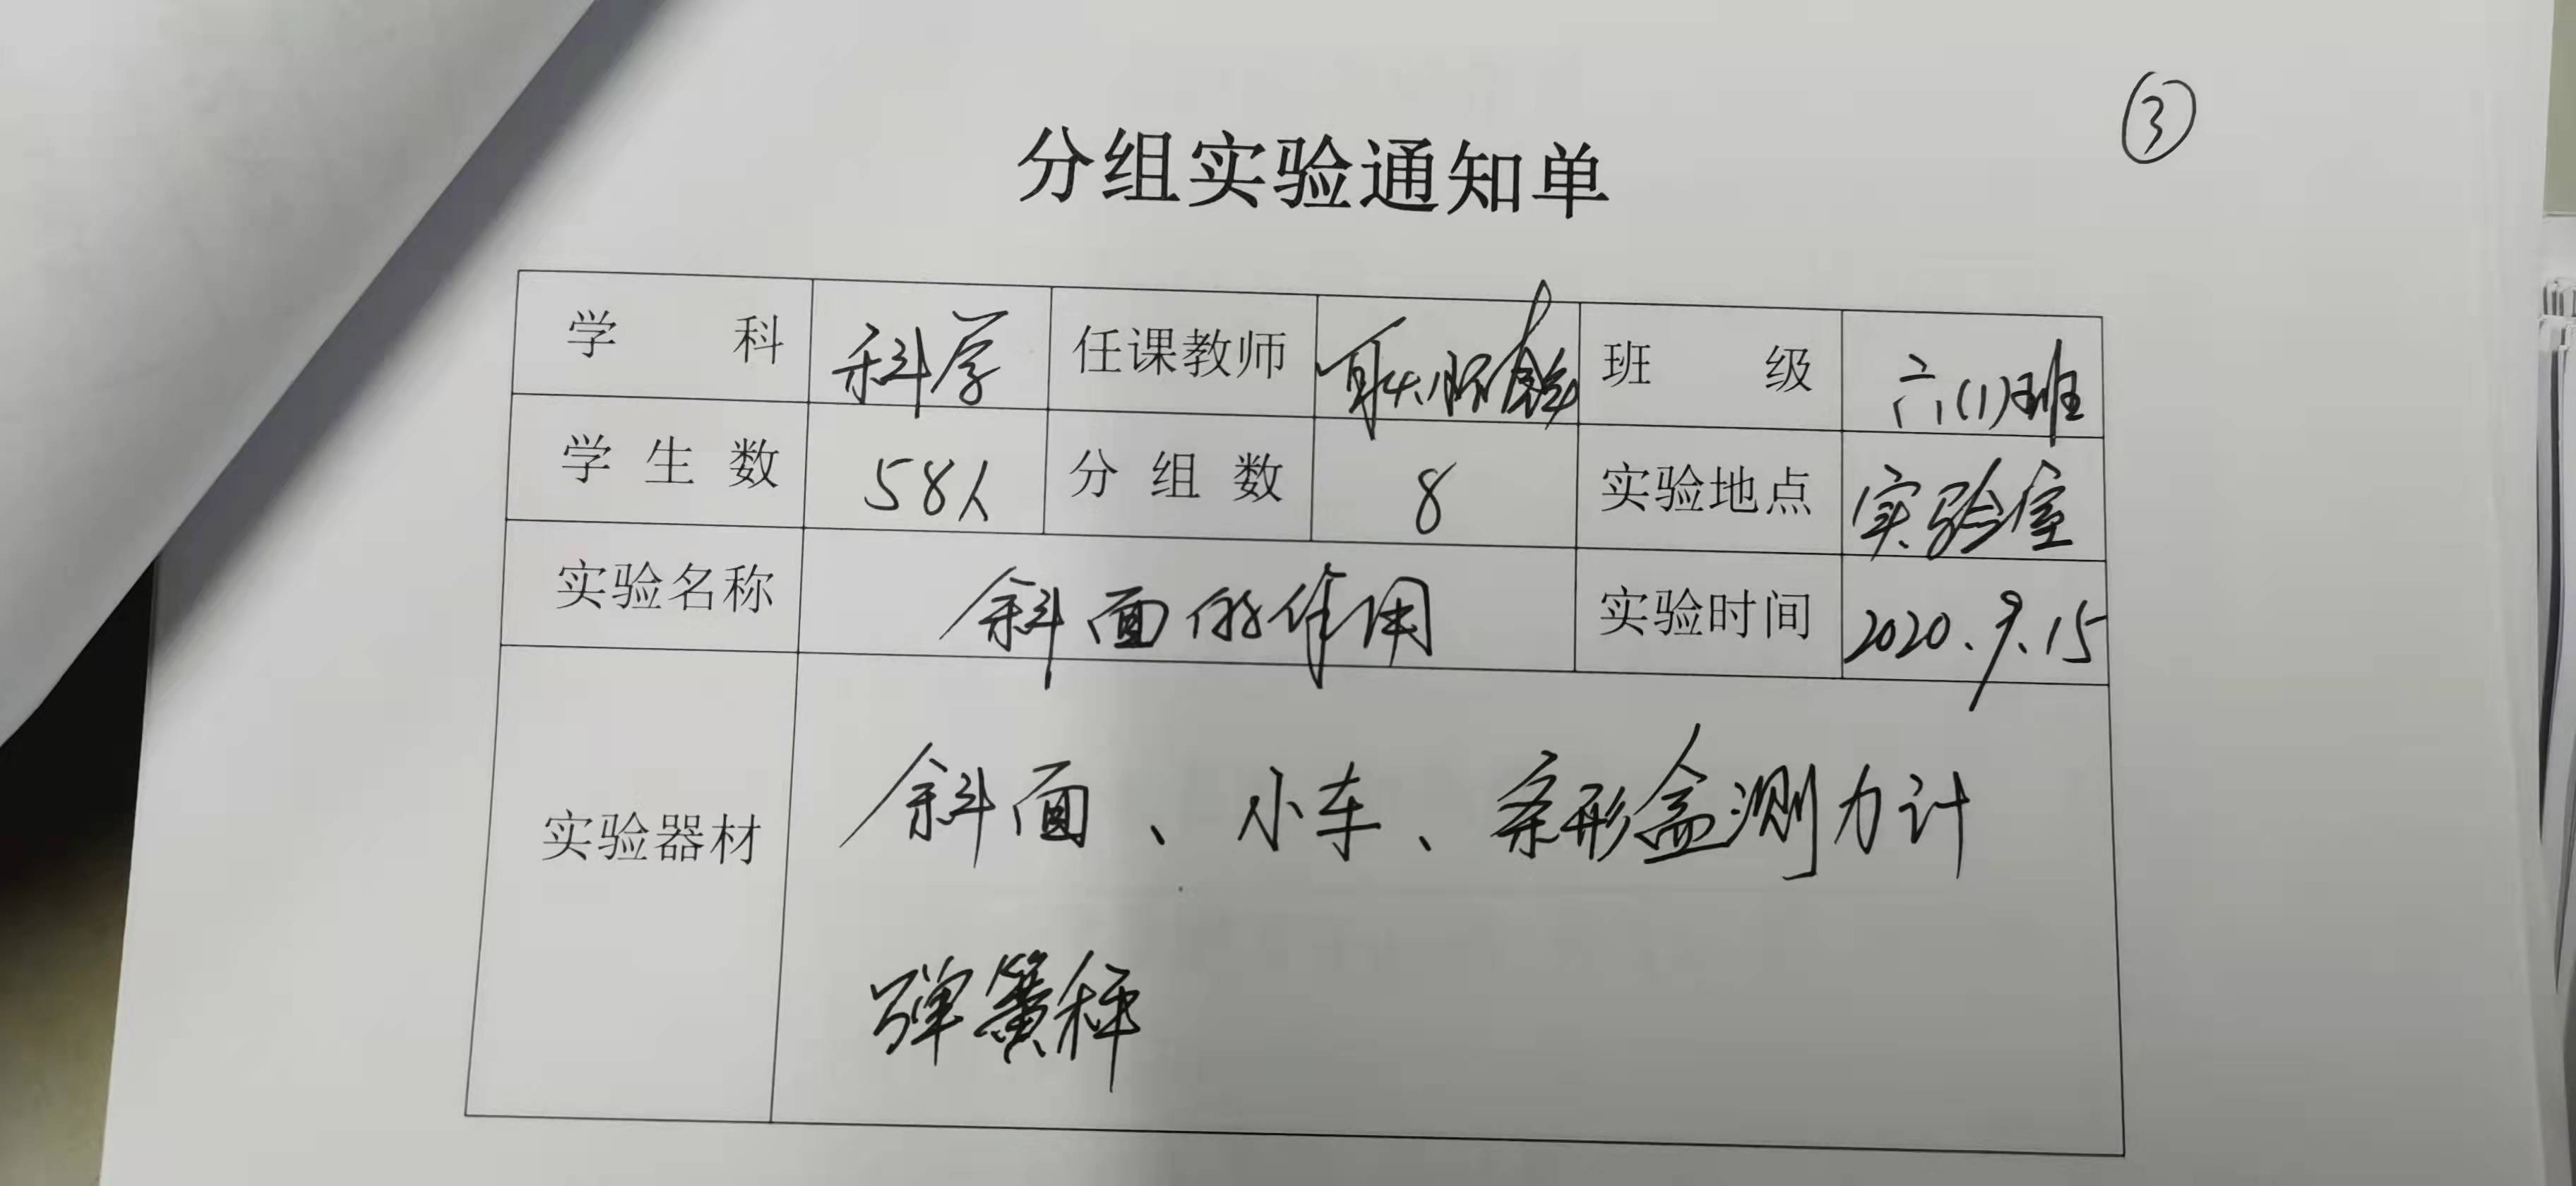 ③
分组实验通知单
学 科 科学 任课教师 班 级 六(1)班
学生数 58人 分组数 8 实验地点 实验室
实验名称 斜面的作用 实验时间 2020.9.15
实验器材 斜面、小车、条形盒测力计
弹簧秤